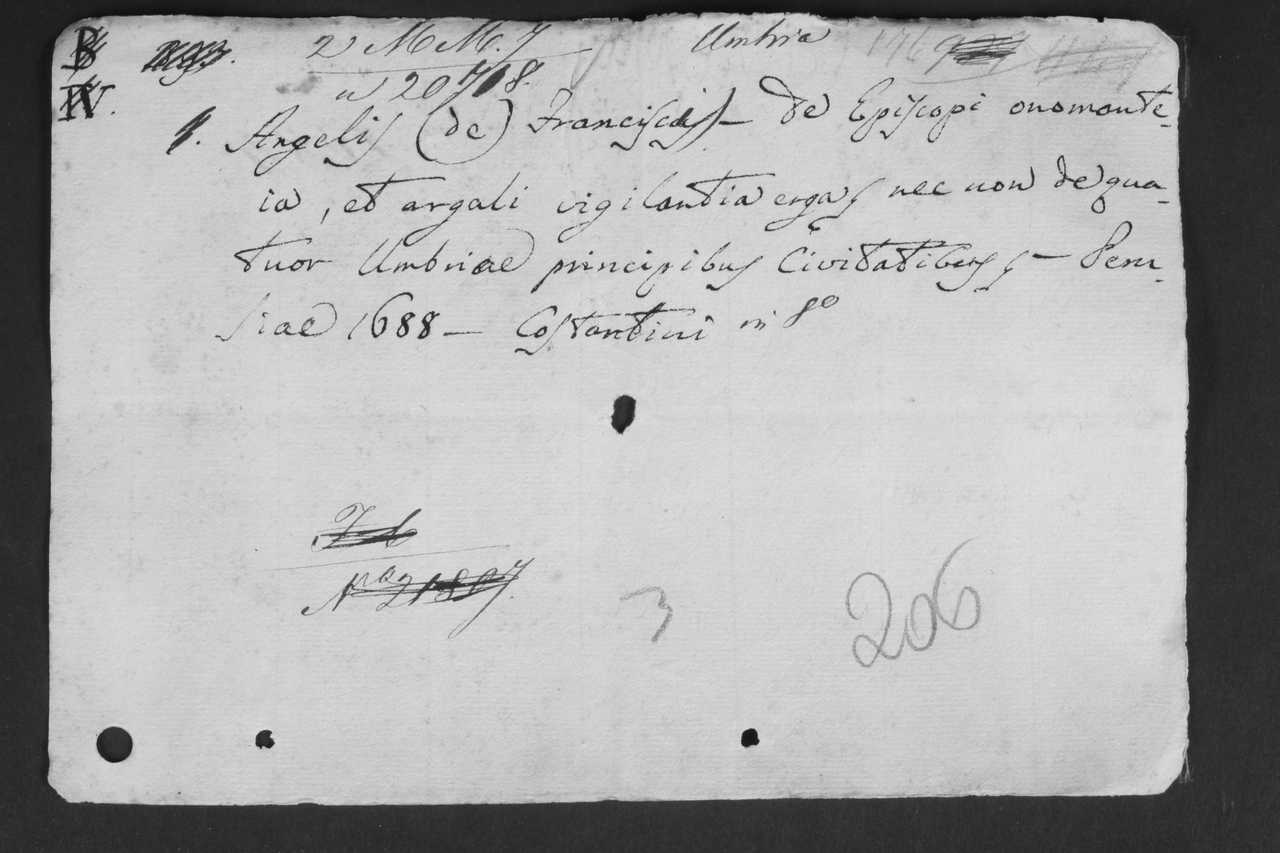 B 2 M M. 7 Umbria
IV. n 20718.
1. Angelis (de) Franciscus) – De Episcopi onomante-
ia, et argali vigilantia erga, nec non de qua-
tuor Umbriae principibus Civitatibus, – Peru-
siae 1688 – Costantini in 8º
N.ro 21807.
3 206